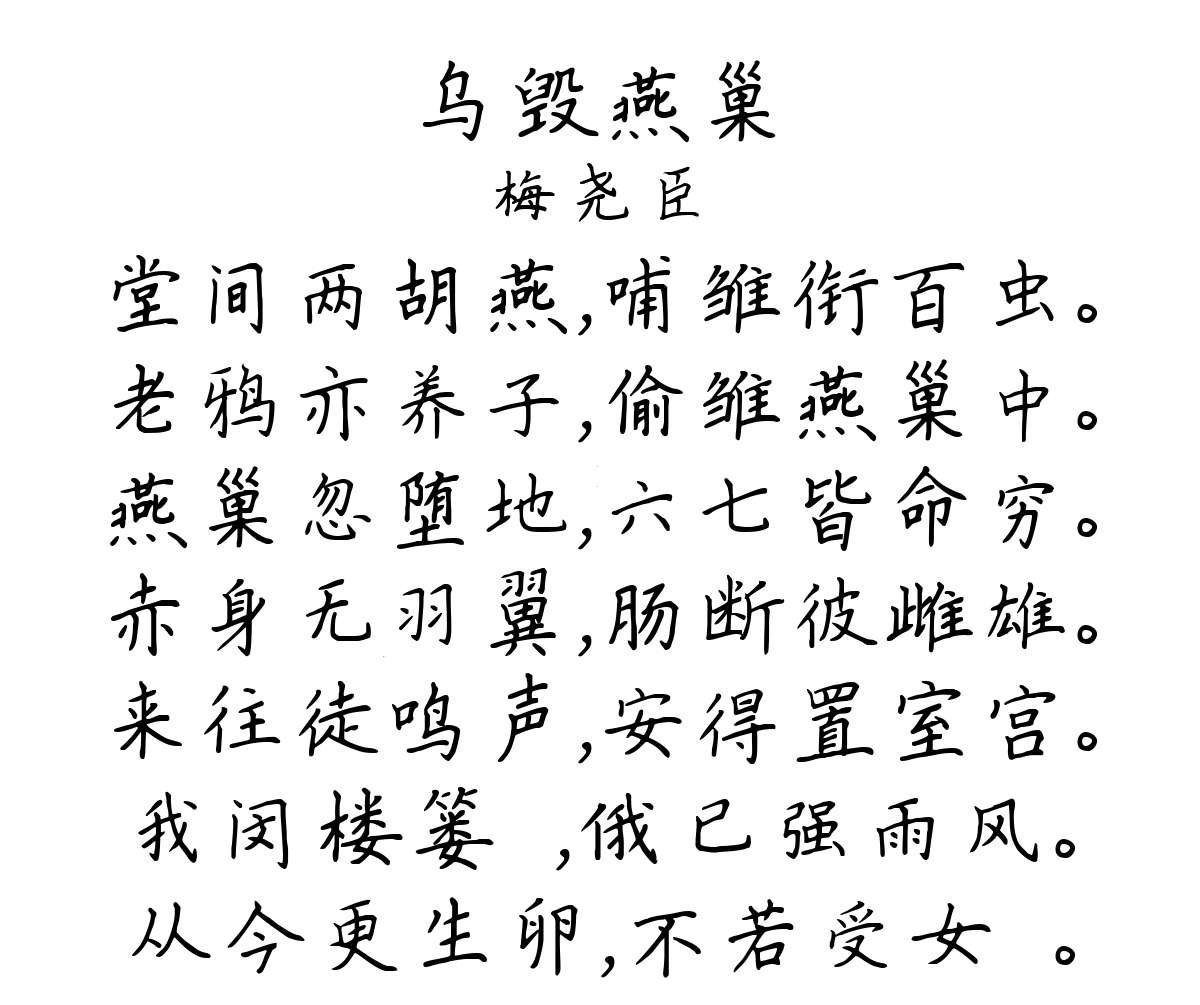 乌毁燕巢
梅尧臣
堂间两胡燕,哺雏衔百虫。
老鸦亦养子,偷雏燕巢中。
燕巢忽堕地,六七皆命穷。
赤身无羽翼,肠断彼雌雄。
来往徒鸣声,安得置室宫。
我闵楼篓 ,俄已强雨风。
从今更生卵,不若受女 。